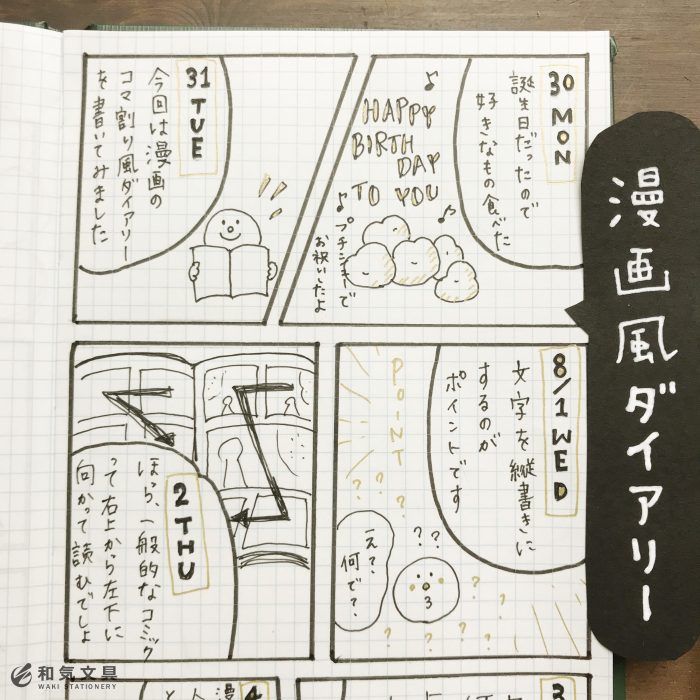 漫画風ダイアリー
30 MON
誕生日だったので
好きなもの食べた
HAPPY
BIRTH
DAY
TO YOU
プチシューで
お祝いしたよ
31 TUE
今回は漫画の
コマ割り風ダイアリー
を書いてみました
8/1 WED
文字を縦書きに
するのが
ポイントです
POINT
え?
何で?
2 THU
ほら、一般的なコミック
って右上から左下に
向かって読むでしょ
3
4
和気文具
WAKI STATIONERY